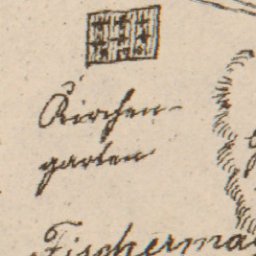 Kirchen-
garten
Fischerma